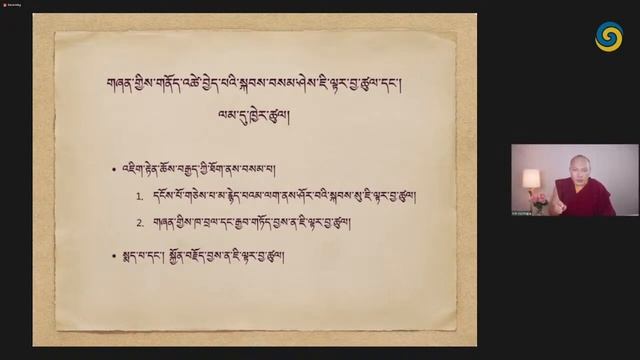 གཞན་གྱིས་གནོད་འཚེ་བྱེད་པའི་སྐབས་བསམ་ཤེས་ཇི་ལྟར་བྱ་ཚུལ་དང་།
ལམ་དུ་ཁྱེར་ཚུལ།
• འཇིག་རྟེན་ཆོས་བརྒྱད་ཀྱི་ཐོག་ནས་བསམ་པ།
1. དངོས་པོ་གཅེས་པ་མ་རྙེད་པའམ་ལག་ནས་ཤོར་བའི་སྐབས་སུ་ཇི་ལྟར་བྱ་ཚུལ།
2. གཞན་གྱིས་ཁ་བྲལ་དང་རྒྱབ་གཏོད་བྱས་ན་ཇི་ལྟར་བྱ་ཚུལ།
• སྨད་པ་དང་། སྐྱོན་བརྗོད་བྱས་ན་ཇི་ལྟར་བྱ་ཚུལ།